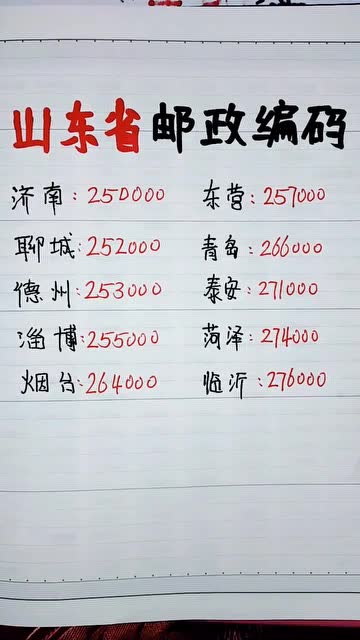 山东省邮政编码
济南:250000 东营:257000
聊城:252000 青岛:266000
德州:253000 泰安:271000
淄博:255000 菏泽:274000
烟台:264000 临沂:276000